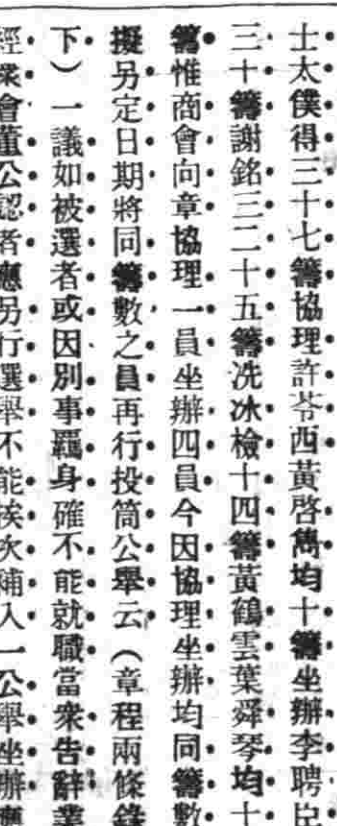 士太僕得三十七籌協理許苓西黃啓雋均十籌坐辦李聘臣
三十籌謝銘三二十五籌冼冰檢十四籌黃鶴雲葉舜琴均十
籌惟商會向章協理一員坐辦四員今因協理坐辦均同籌數
擬另定日期將同籌數之員再行投筒公舉云（章程兩條錄
下）一議如被選者或因別事羈身確不能就職當衆告辭業
經衆會董公認者應另行選舉不能挨次補入一公舉坐辦應